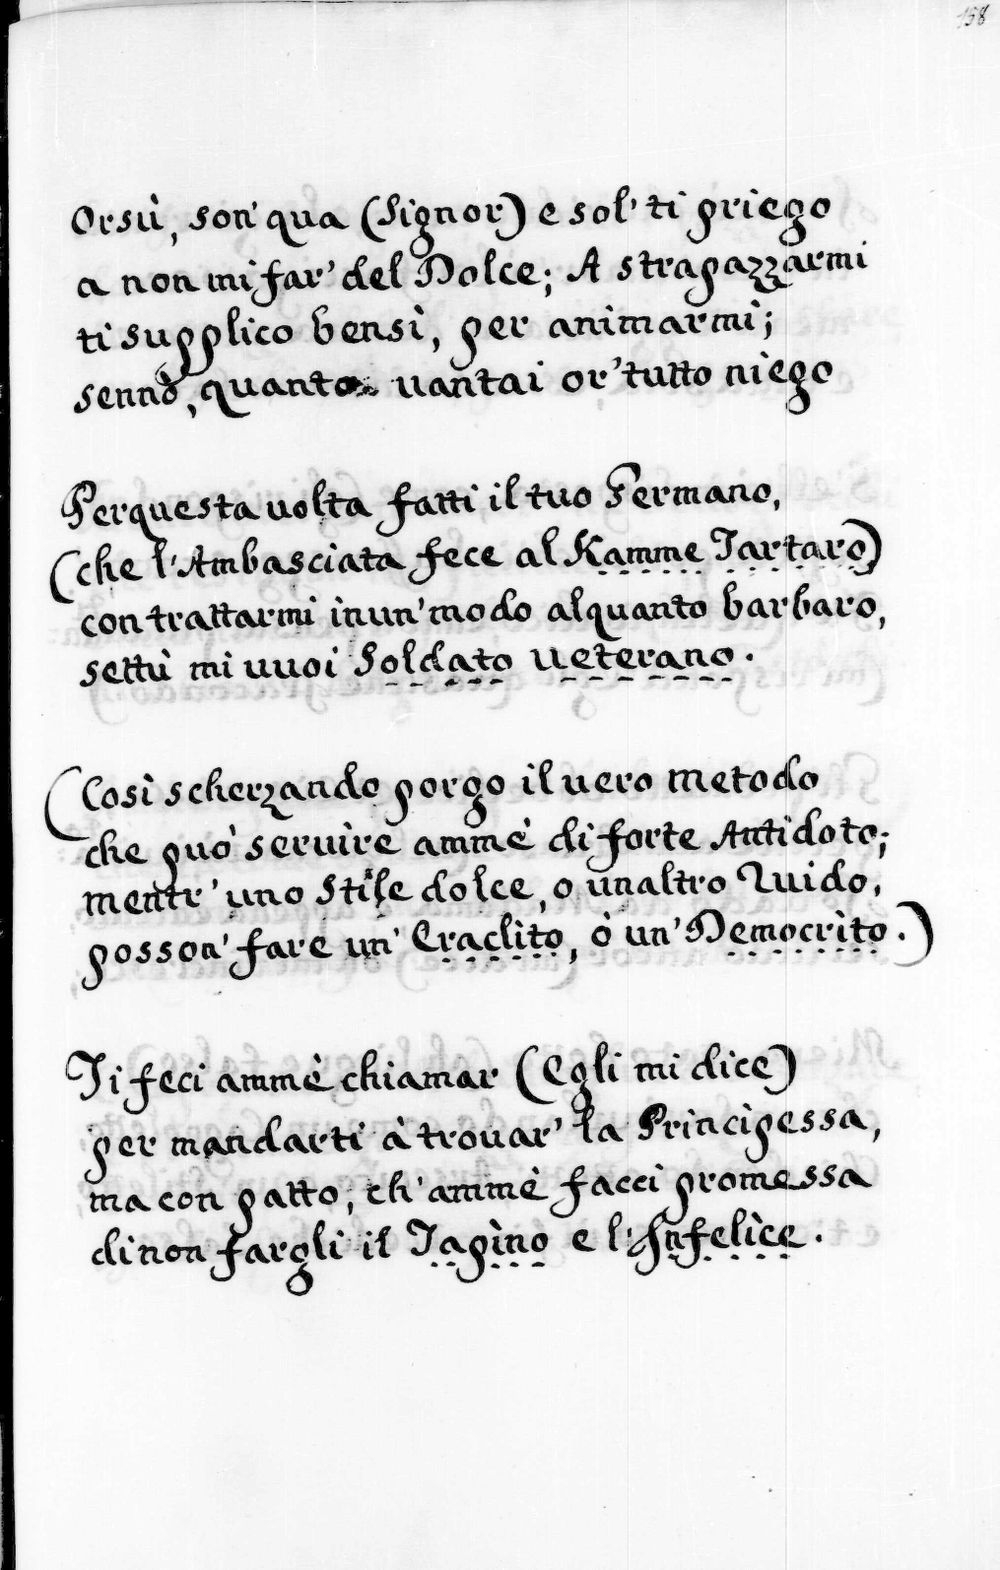 158
Orsù, son' qua (Signor) e sol' ti priego
a non mi far' del Dolce; A strapazzarmi
ti supplico bensì, per animarmi;
sennò, quanto vantai or' tutto niego
Perquesta uolta fatti il tuo Germano,
(che l'Ambasciata fece al Kamme Tartaro)
con trattarmi inun' modo alquanto barbaro,
settù mi vuoi Soldato Veterano.
(Così scherzando porgo il vero metodo
che può servire ammè di forte Antidoto;
mentr' uno Stile dolce, o unaltro Ruido,
posson' fare un' Eraclìto, ò un' Democrìto.)
Ti feci ammè chiamar (Egli mi dice)
per mandarti à trovar' la Principessa,
ma con patto, ch' ammè facci promessa
di non fargli il Tapìno e l'Infelìce.